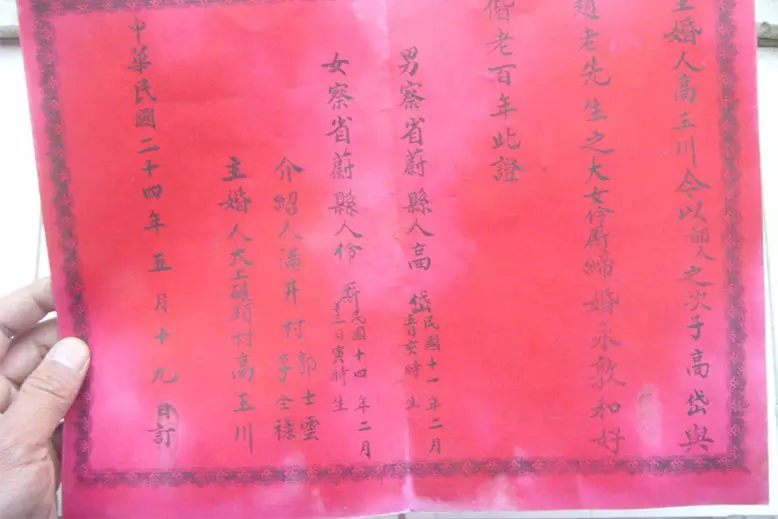 主婚人高玉川今以鄙人之次子高岱與
趙老先生之大女伶 締婚永敦和好
偕老百年此證
男察省蔚縣人高 岱 民國十一年二月
日亥時生
女察省蔚縣人伶 民國十四年二月
日寅時生
介紹人滿井村 郭士雲
李全祿
主婚人大 頭村高玉川
中華民國二十四年五月十九日訂